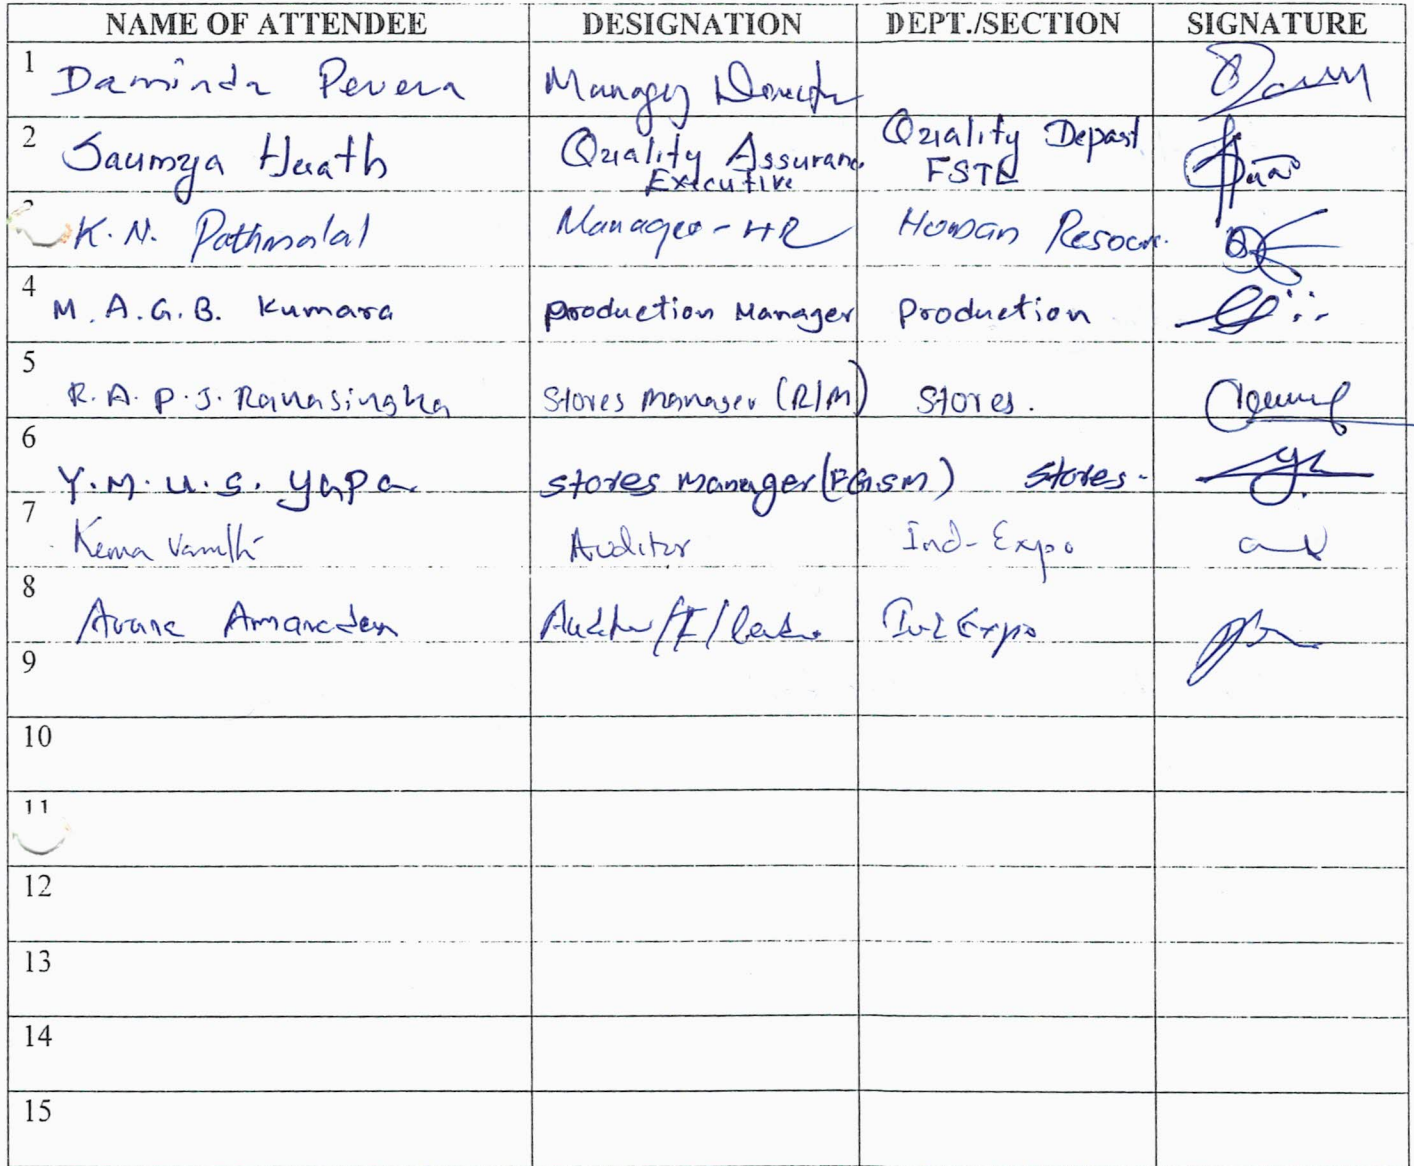 NAME OF ATTENDEE DESIGNATION DEPT./SECTION SIGNATURE
1 Daminda Perera Managing Director
2 Saumya Herath Quality Assurance Executive Quality Depast FSTE
3 K. N. Pathmalal Manager - HR Human Resourc.
4 M. A. G. B. Kumara production Manager Production
5 R. A. P. J. Ranasingha Stores Manager (R/M) Stores.
6 Y. M. U. S. Yapa stores Manager (FGSM) Stores.
7 Kema Auditor Ind-Expo
8 Auditor/ Expo
9
10
11
12
13
14
15